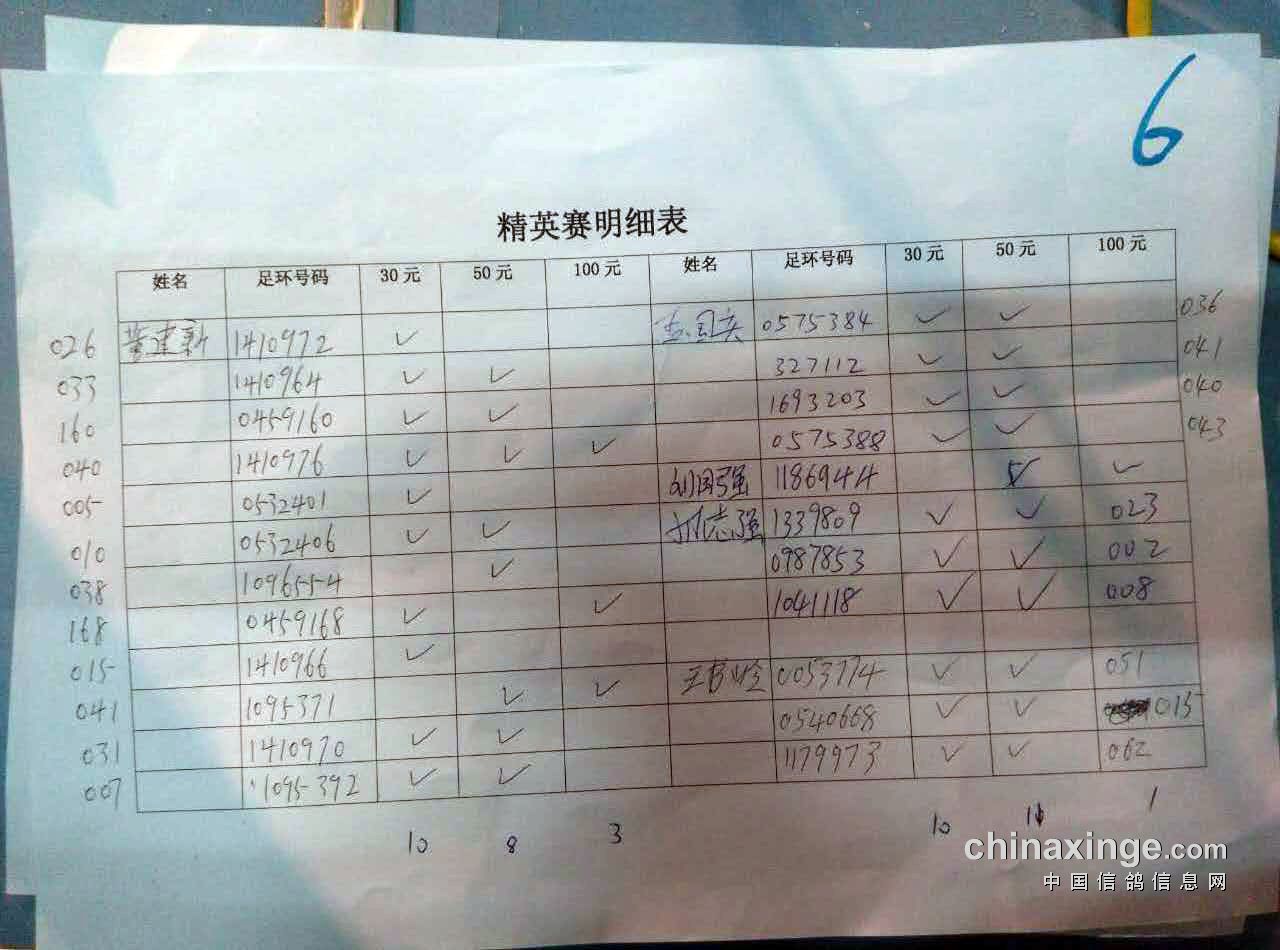 6
精英赛明细表
姓名 足环号码 30元 50元 100元 姓名 足环号码 30元 50元 100元
026 董建新 1410972 ✓ 0575384 ✓ ✓ 036
033 1410964 ✓ ✓ 327112 ✓ ✓ 041
160 0459160 ✓ ✓ 1693203 ✓ ✓ 040
040 1410976 ✓ ✓ ✓ 0575388 ✓ ✓ 043
005 0532401 ✓ 刘国强 1186944 ✓ ✓
010 0532406 ✓ ✓ 孙志强 1339809 ✓ ✓ 023
038 1096554 ✓ 0987853 ✓ ✓ 002
168 0459168 ✓ ✓ 1041118 ✓ ✓ 008
015 1410966 ✓
041 1095371 ✓ ✓ 0053774 ✓ ✓ 051
031 1410970 ✓ ✓ 0540668 ✓ ✓ 015
007 1095392 ✓ ✓ 1179973 ✓ ✓ 062
10 8 3 10 11 1
chinaxinge.com
中国信鸽信息网